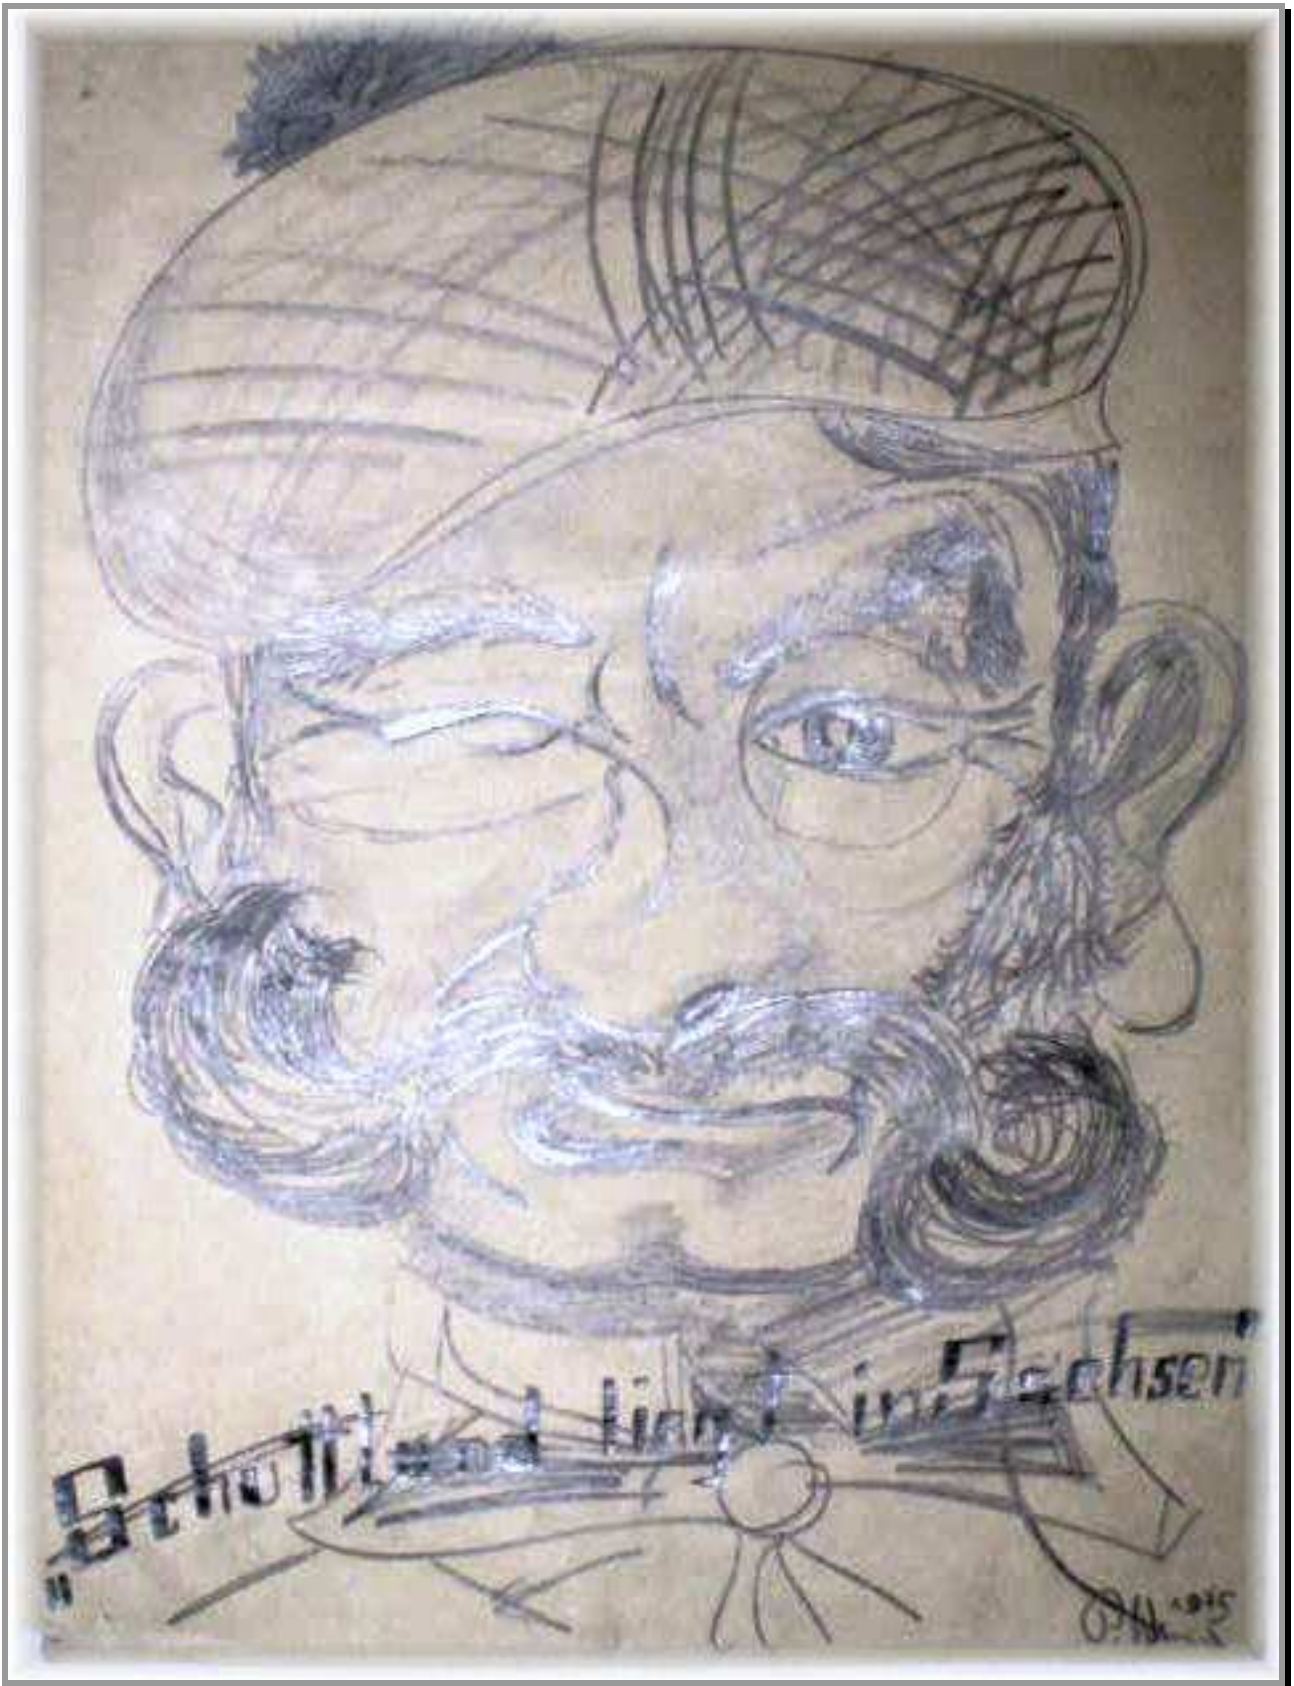 "Schottland liegt in Sachsen"
1975